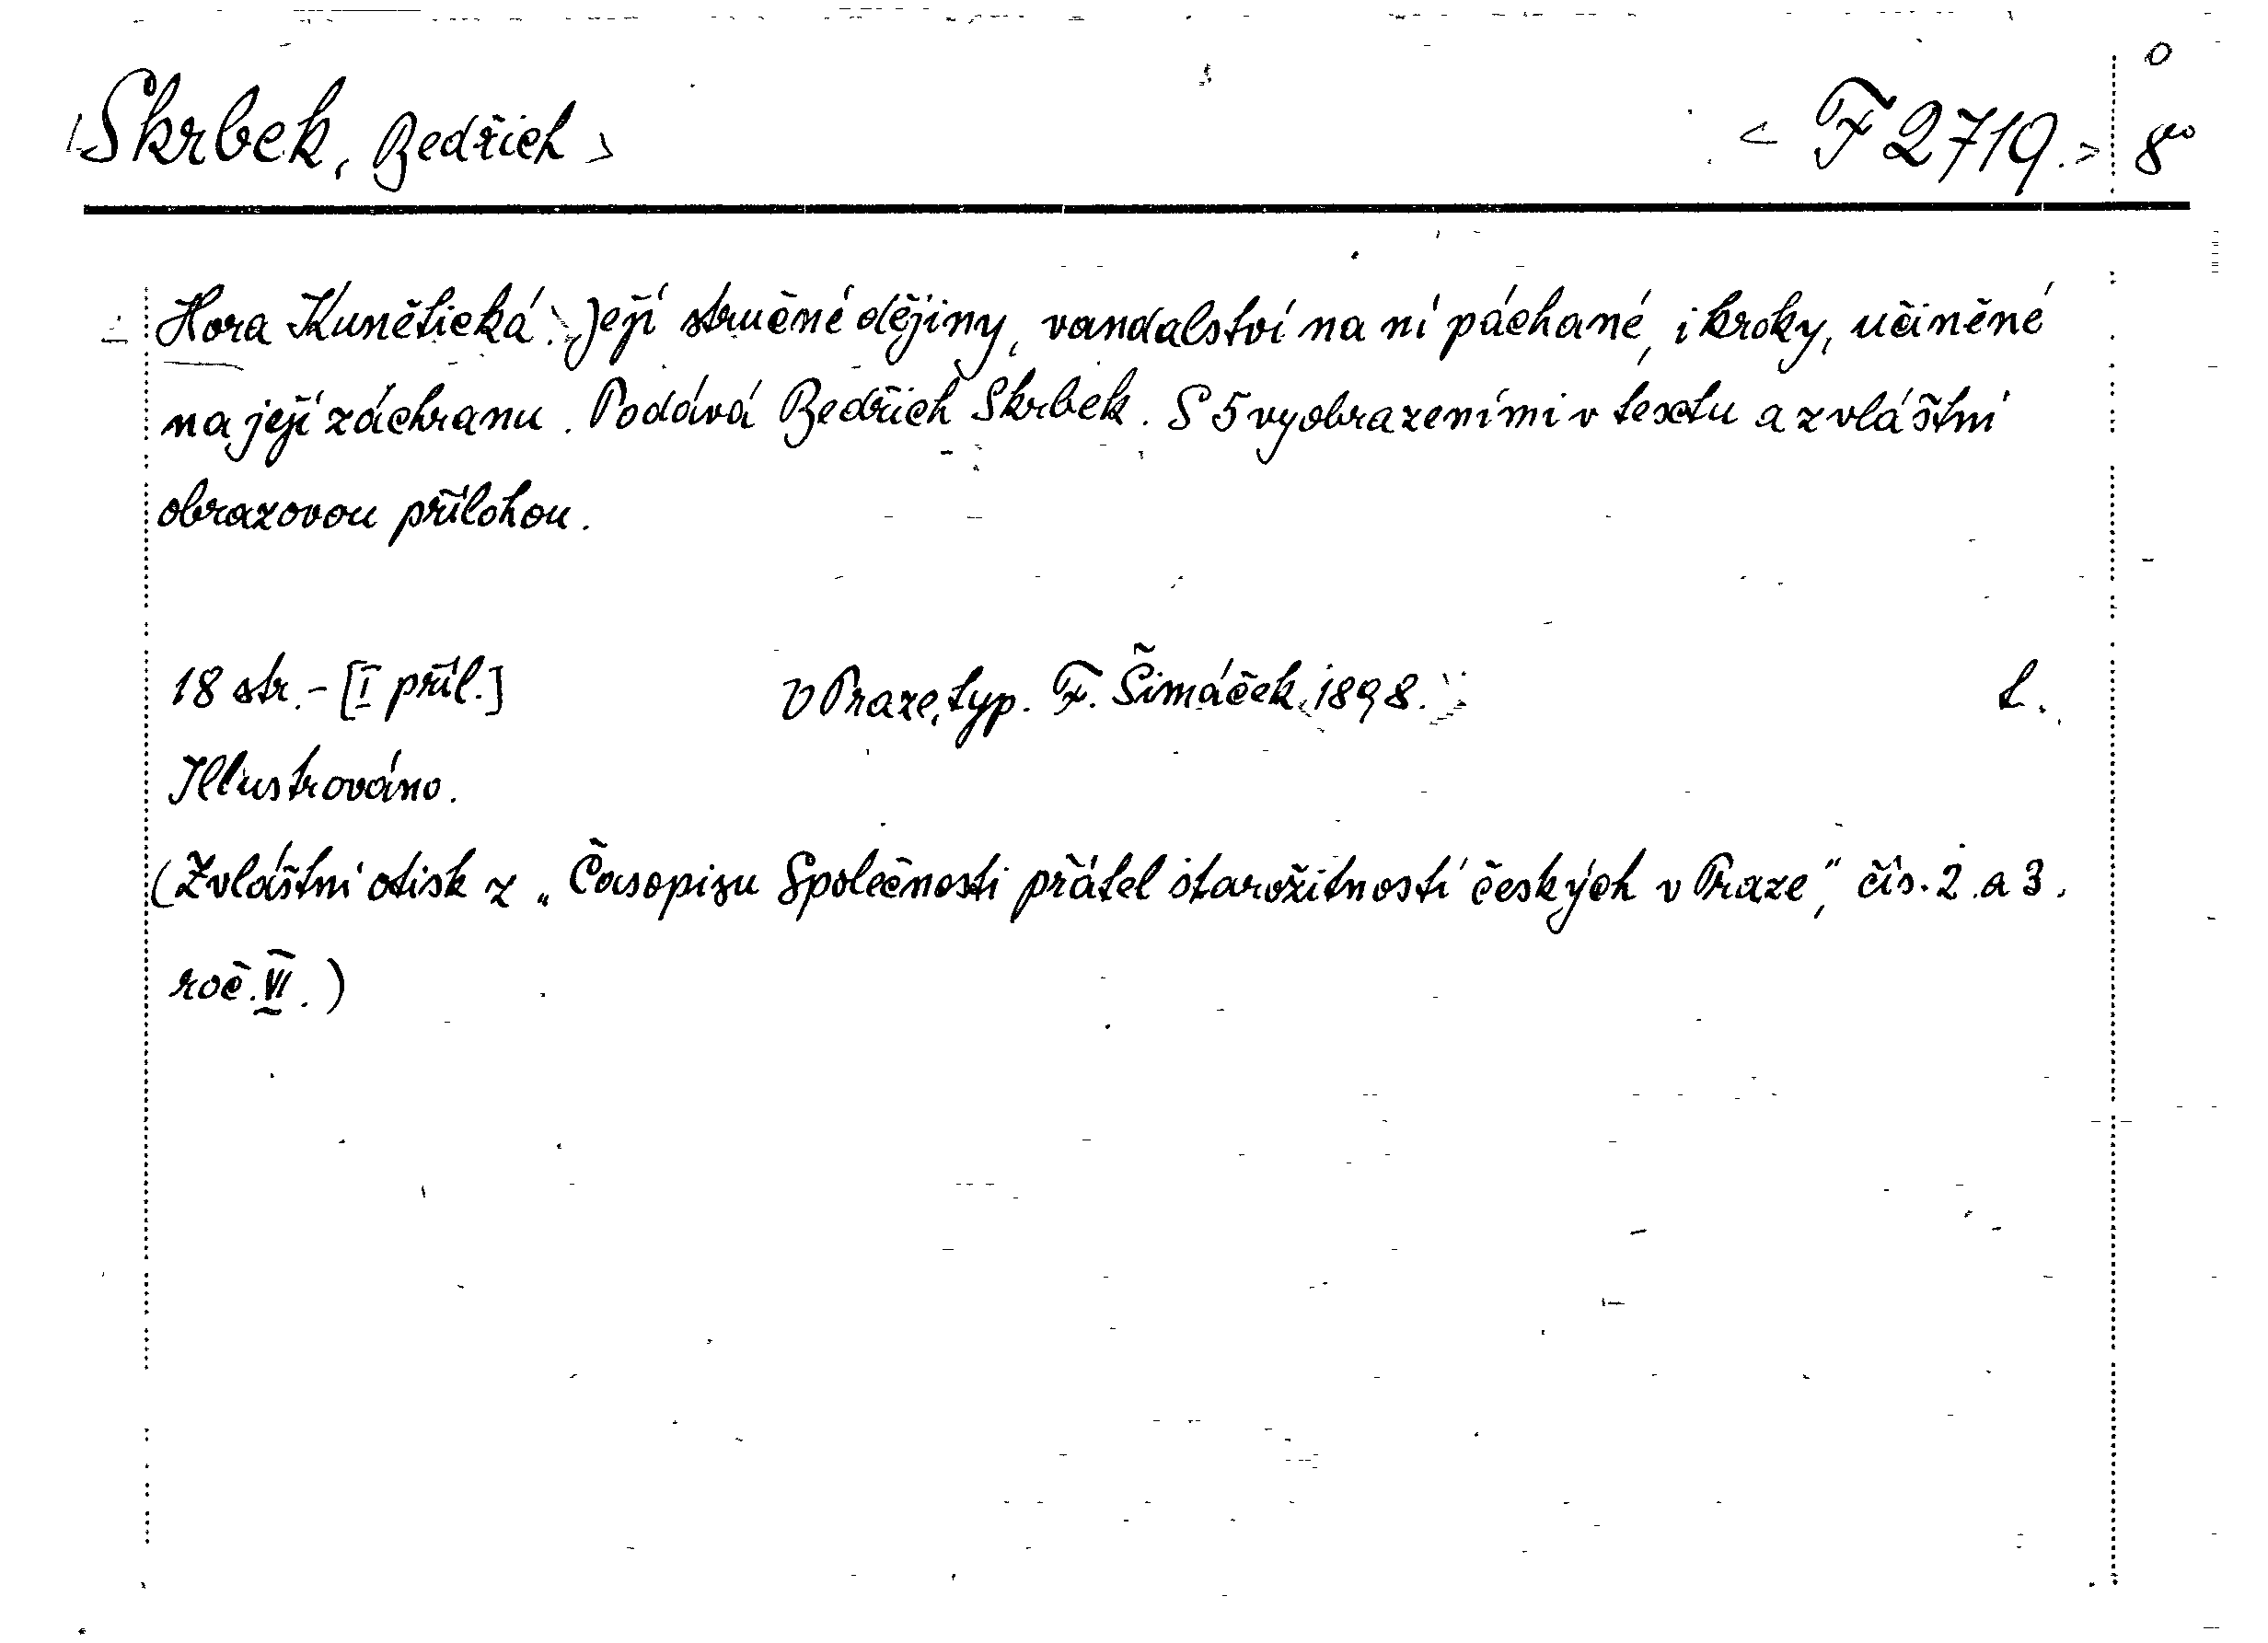 Skrbek, Bedřich > < F 2719. > 8°
Hora Kunětická. Její stručné dějiny, vandalství na ní páchané, i kroky, učiněné
na její záchranu. Podává Bedřich Skrbek. S 5 vyobrazeními v textu a zvláštní
obrazovou přílohou.
18 str. - [I příl.] V Praze, typ. F. Šimáček, 1898. L.
Illustrováno.
(Zvláštní otisk z „Časopisu Společnosti přátel starožitností českých v Praze", čís. 2. a 3.
roč. VI.)